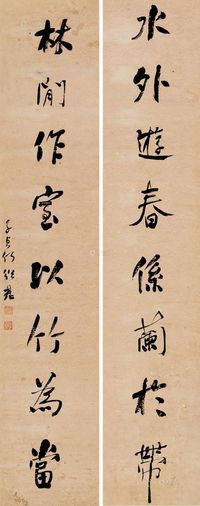 水外遊春係蘭於帶
林間作室以竹為當
子貞何紹基